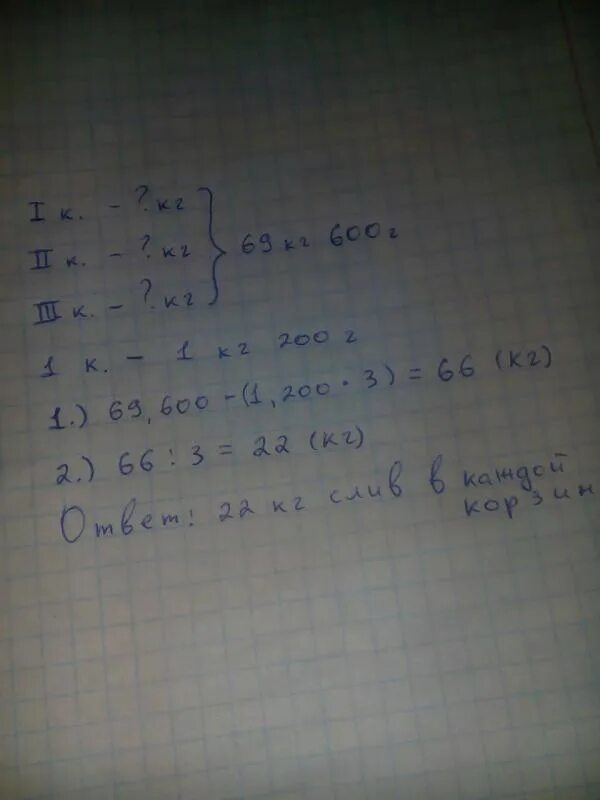 I к. - ? кг
II к. - ? кг } 69 кг 600 г
III к. - ? кг
1 к. - 1 кг 200 г
1.) 69,600 - (1,200 · 3) = 66 (кг)
2.) 66 : 3 = 22 (кг)
Ответ: 22 кг слив в каждой
корзин